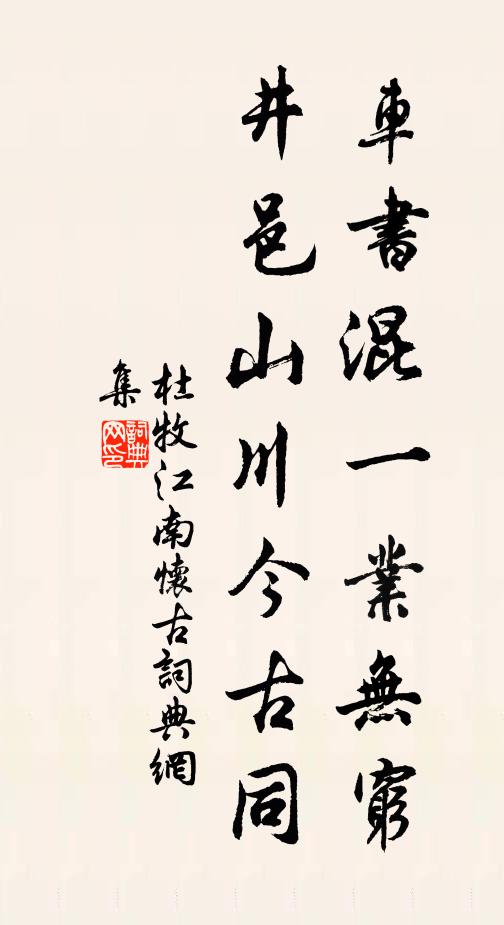 車書混一業無窮
井邑山川今古同
杜牧江南懷古詞典網
集
詞典网印